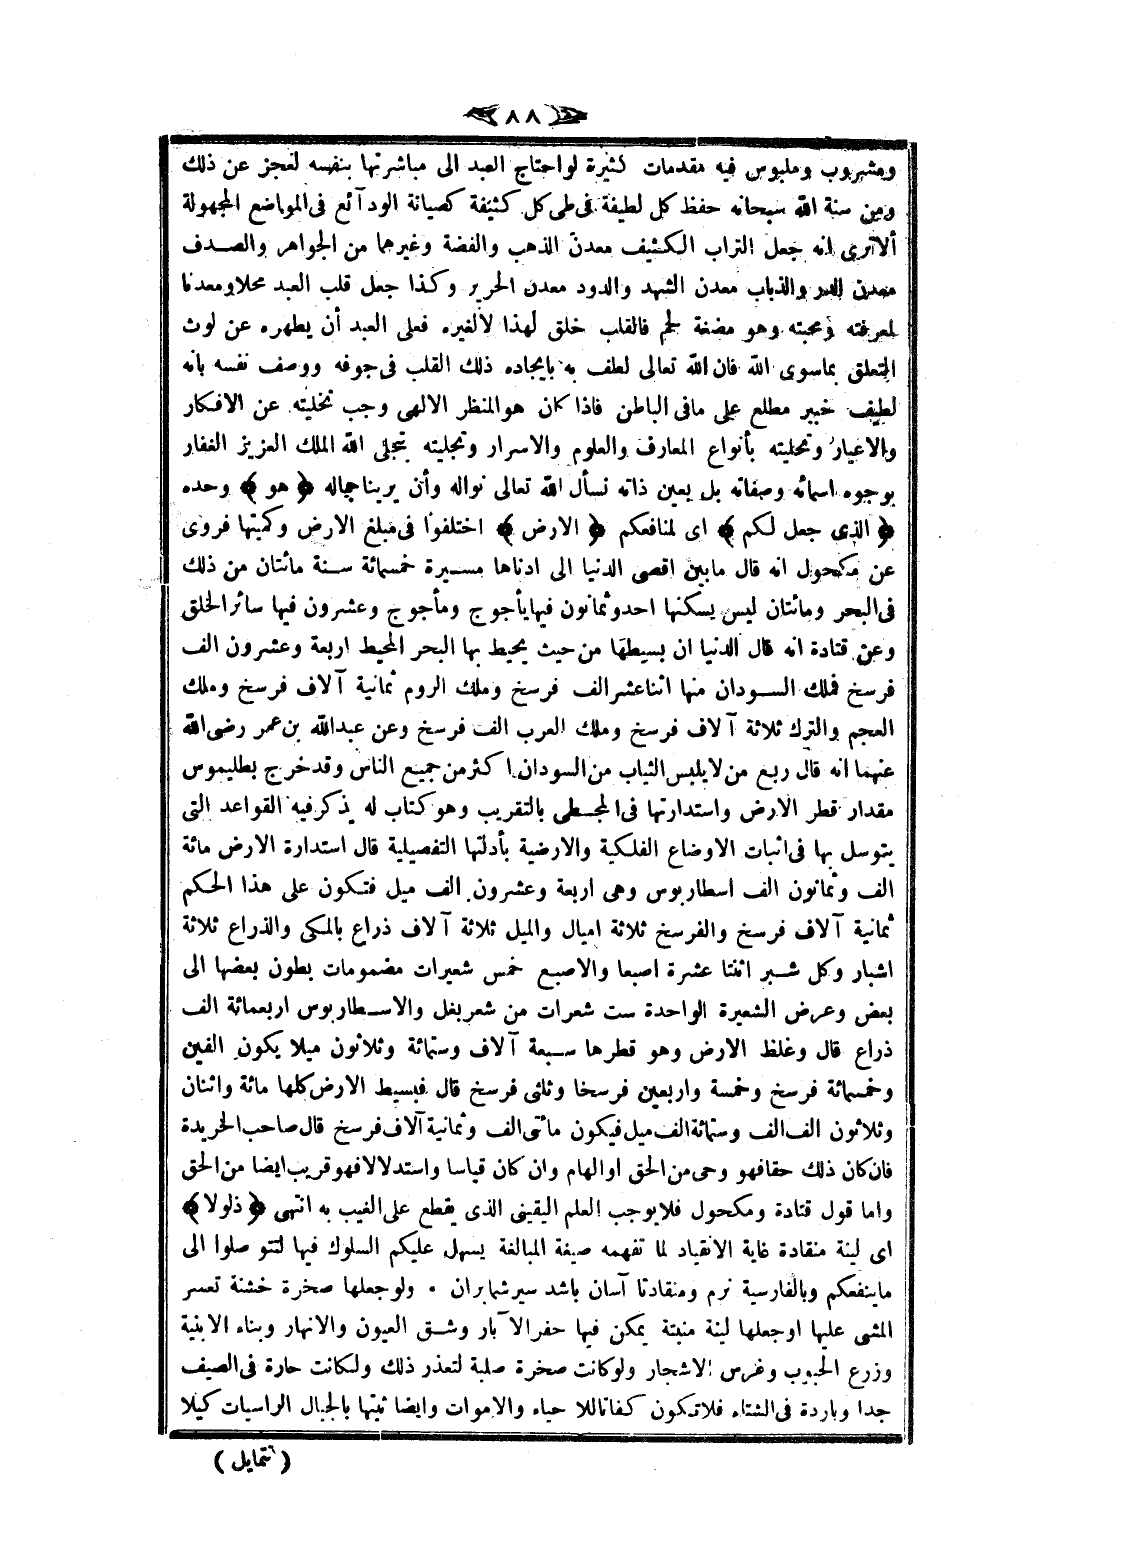 ٨٨
ومشروب وملبوس فيه مقدمات كثيرة لواحتاج العبد الى مباشرتها بنفسه لعجز عن ذلك
ومن سنة الله سبحانه حفظ كل لطيفة فى طى كل كثيفة كصيانة الودآئع فى المواضع المجهولة
ألاترى انه جعل التراب الكثيف معدن الذهب والفضة وغيرهما من الجواهر والصدف
معدن الدر والذباب معدن الشهد والدود معدن الحرير وكذا جعل قلب العبد محلا ومعدنا
لمعرفته ومحبته وهو مضغة لحم فالقلب خلق لهذا لالغيره فعلى العبد أن يطهره عن لوث
التعلق بماسوى الله فان الله تعالى لطف به بايجاده ذلك القلب فى جوفه ووصف نفسه بانه
لطيف خبير مطلع على مافى الباطن فاذا كان هو المنظر الالهى وجب تخليته عن الافكار
والاغيار وتحليته بأنواع المعارف والعلوم والاسرار وتجليته بتجلى الله الملك العزيز الغفار
بوجوه اسمائه وصفاته بل بعين ذاته نسأل الله تعالى نواله وأن يرينا جماله ﴿ هو ﴾ وحده
﴿ الذى جعل لكم ﴾ اى لمنافعكم ﴿ الارض ﴾ اختلفوا فى مبلغ الارض وكميتها فروى
عن مكحول انه قال مابين اقصى الدنيا الى ادناها مسيرة خمسمائة سنة مائتان من ذلك
فى البحر ومائتان ليس يسكنها احد وثمانون فيها يأجوج ومأجوج وعشرون فيها سائر الخلق
وعن قتادة انه قال الدنيا ان بسيطها من حيث يحيط بها البحر المحيط اربعة وعشرون الف
فرسخ فملك السودان منها اثنا عشر الف فرسخ وملك الروم ثمانية آلاف فرسخ وملك
العجم والترك ثلاثة آلاف فرسخ وملك العرب الف فرسخ وعن عبدالله بن عمر رضى الله
عنهما انه قال ربع من لايلبس الثياب من السودان اكثر من جميع الناس وقد خرج بطليموس
مقدار قطر الارض واستدارتها فى المجسطى بالتقريب وهو كتاب له يذكر فيه القواعد التى
يتوسل بها فى اثبات الاوضاع الفلكية والارضية بأدلتها التفصيلية قال استدارة الارض مائة
الف وثمانون الف اسطاربوس وهى اربعة وعشرون الف ميل فتكون على هذا الحكم
ثمانية آلاف فرسخ والفرسخ ثلاثة اميال والميل ثلاثة آلاف ذراع بالمكى والذراع ثلاثة
اشبار وكل شبر اثنتا عشرة اصبعا والاصبع خمس شعيرات مضمومات بطون بعضها الى
بعض وعرض الشعيرة الواحدة ست شعرات من شعر بغل والاسطاربوس اربعمائة الف
ذراع قال وغلظ الارض وهو قطرها سبعة آلاف وستمائة وثلاثون ميلا يكون الفين
وخمسمائة فرسخ وخمسة واربعين فرسخا وثلثى فرسخ قال فبسيط الارض كلها مائة واثنان
وثلاثون الف الف وستمائة الف ميل فيكون مائتى الف وثمانية آلاف فرسخ قال صاحب الخريدة
فان كان ذلك حقا فهو وحى من الحق او الهام وان كان قياسا واستدلالا فهو قريب ايضا من الحق
واما قول قتادة ومكحول فلا يوجب العلم اليقينى الذى يقطع على الغيب به انتهى ﴿ ذلولا ﴾
اى لينة منقادة غاية الانقياد لما تفهمه صيغة المبالغة يسهل عليكم السلوك فيها لتتو صلوا الى
ماينفعكم وبالفارسية نرم ومنقاد تا آسان باشد سير شما بران . ولوجعلها صخرة خشنة تعسر
المشى عليها اوجعلها لينة منبتة يمكن فيها حفر الآبار وشق العيون والانهار وبناء الابنية
وزرع الحبوب وغرس الاشجار ولوكانت صخرة صلبة لتعذر ذلك ولكانت حارة فى الصيف
جدا وباردة فى الشتاء فلاتكون كفاتا للاحياء والاموات وايضا ثبتها بالجبال الراسيات كيلا
( تتمايل )